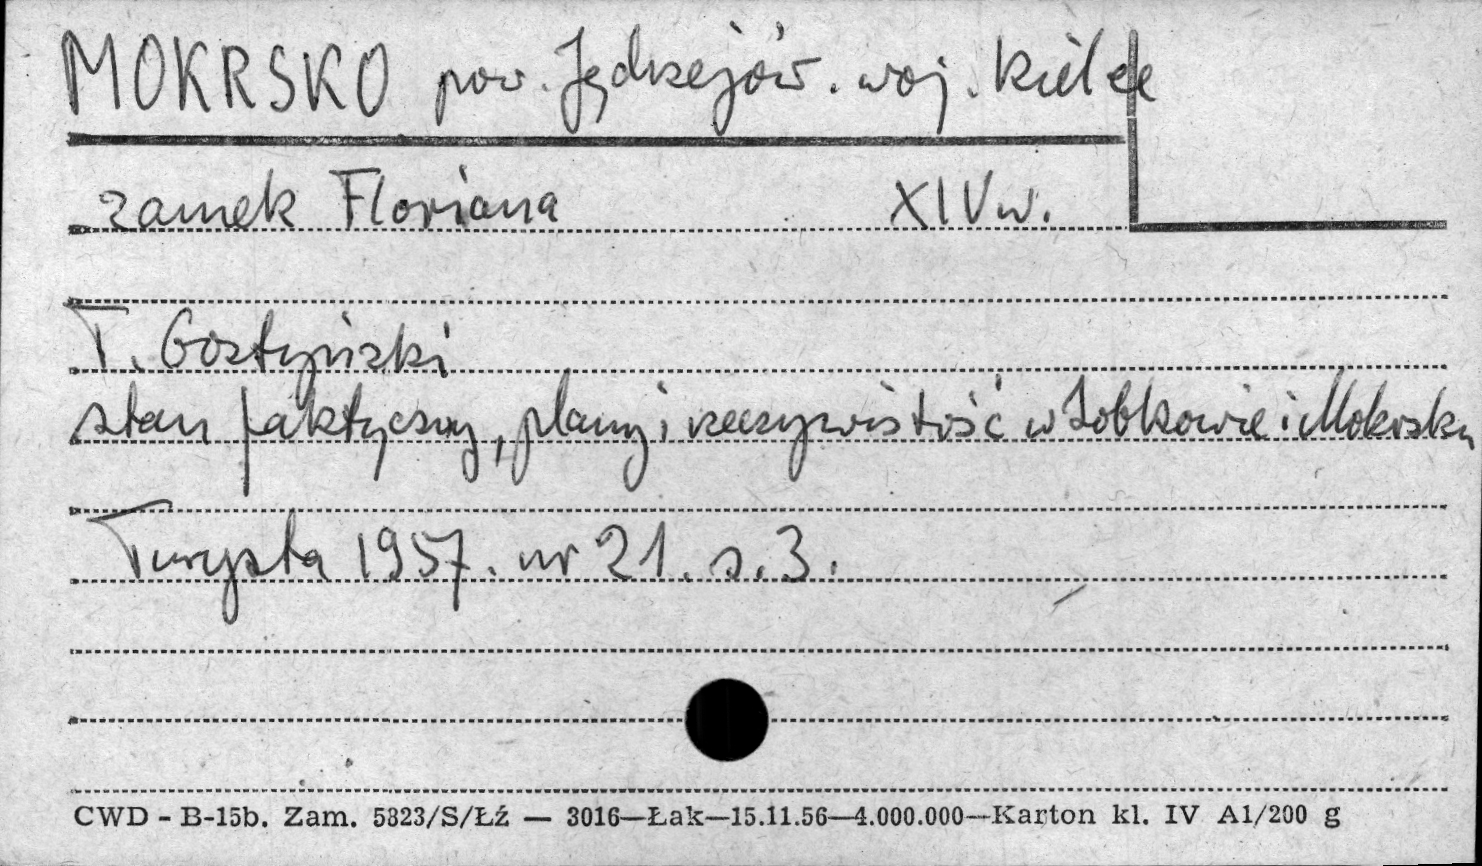 MOKRSKO pow. Jędrzejów. woj. Kielce
zamek Floriana XIV w.
T. Gostyński
stan faktyczny, plany i rzeczywistość w Sobkowie i Mokrsku
Turysta 1957. nr 21. s. 3.
CWD - B-15b. Zam. 5823/S/Łź — 3016—Łak—15.11.56—4.000.000—Karton kl. IV A1/200 g